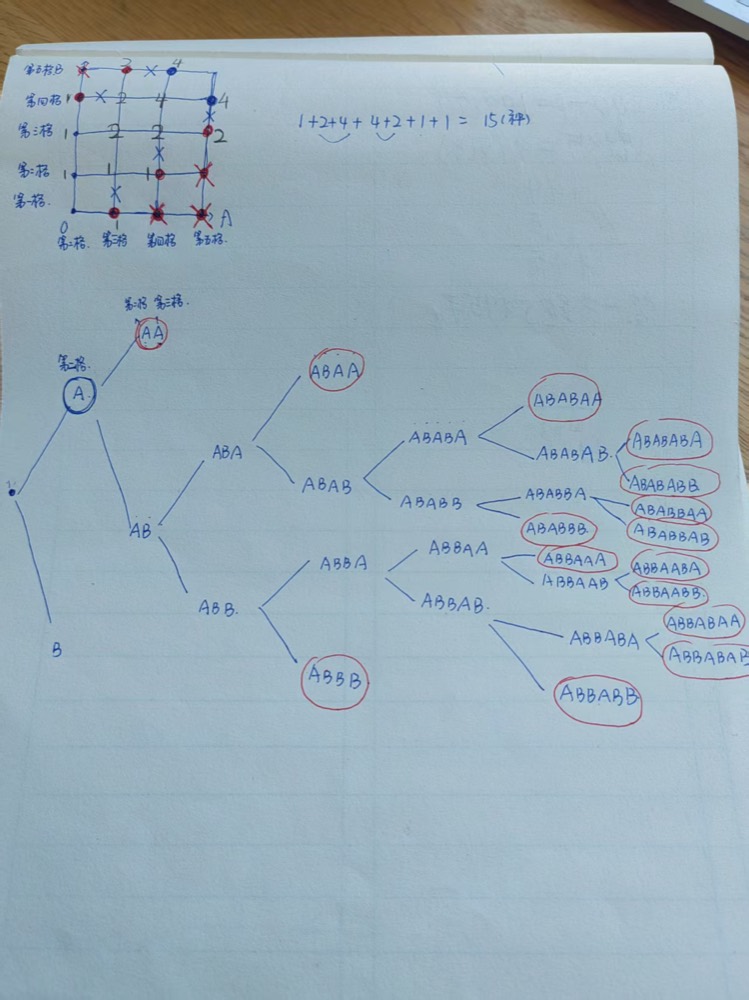 第五格B 2 4
第四格 1 2 4 4
第三格 1 2 2 2
第二格 1 1 1
第一格
0 1 A
第二格. 第三格. 第四格 第五格.
1+2+4+4+2+1+1= 15(种)
第二格 第三格.
AA
第二格.
A
ABAA
ABABAA
ABA ABABA ABABABA
ABABAB.
ABAB ABABABB
ABABB ABABBA ABABBAA
AB ABABBB ABABBAB
ABBA ABBAA ABBAAA ABBAABA
ABBAAB ABBAABB
ABB. ABBAB. ABBABAA
B ABBABA ABBABAB
ABBB ABBABB